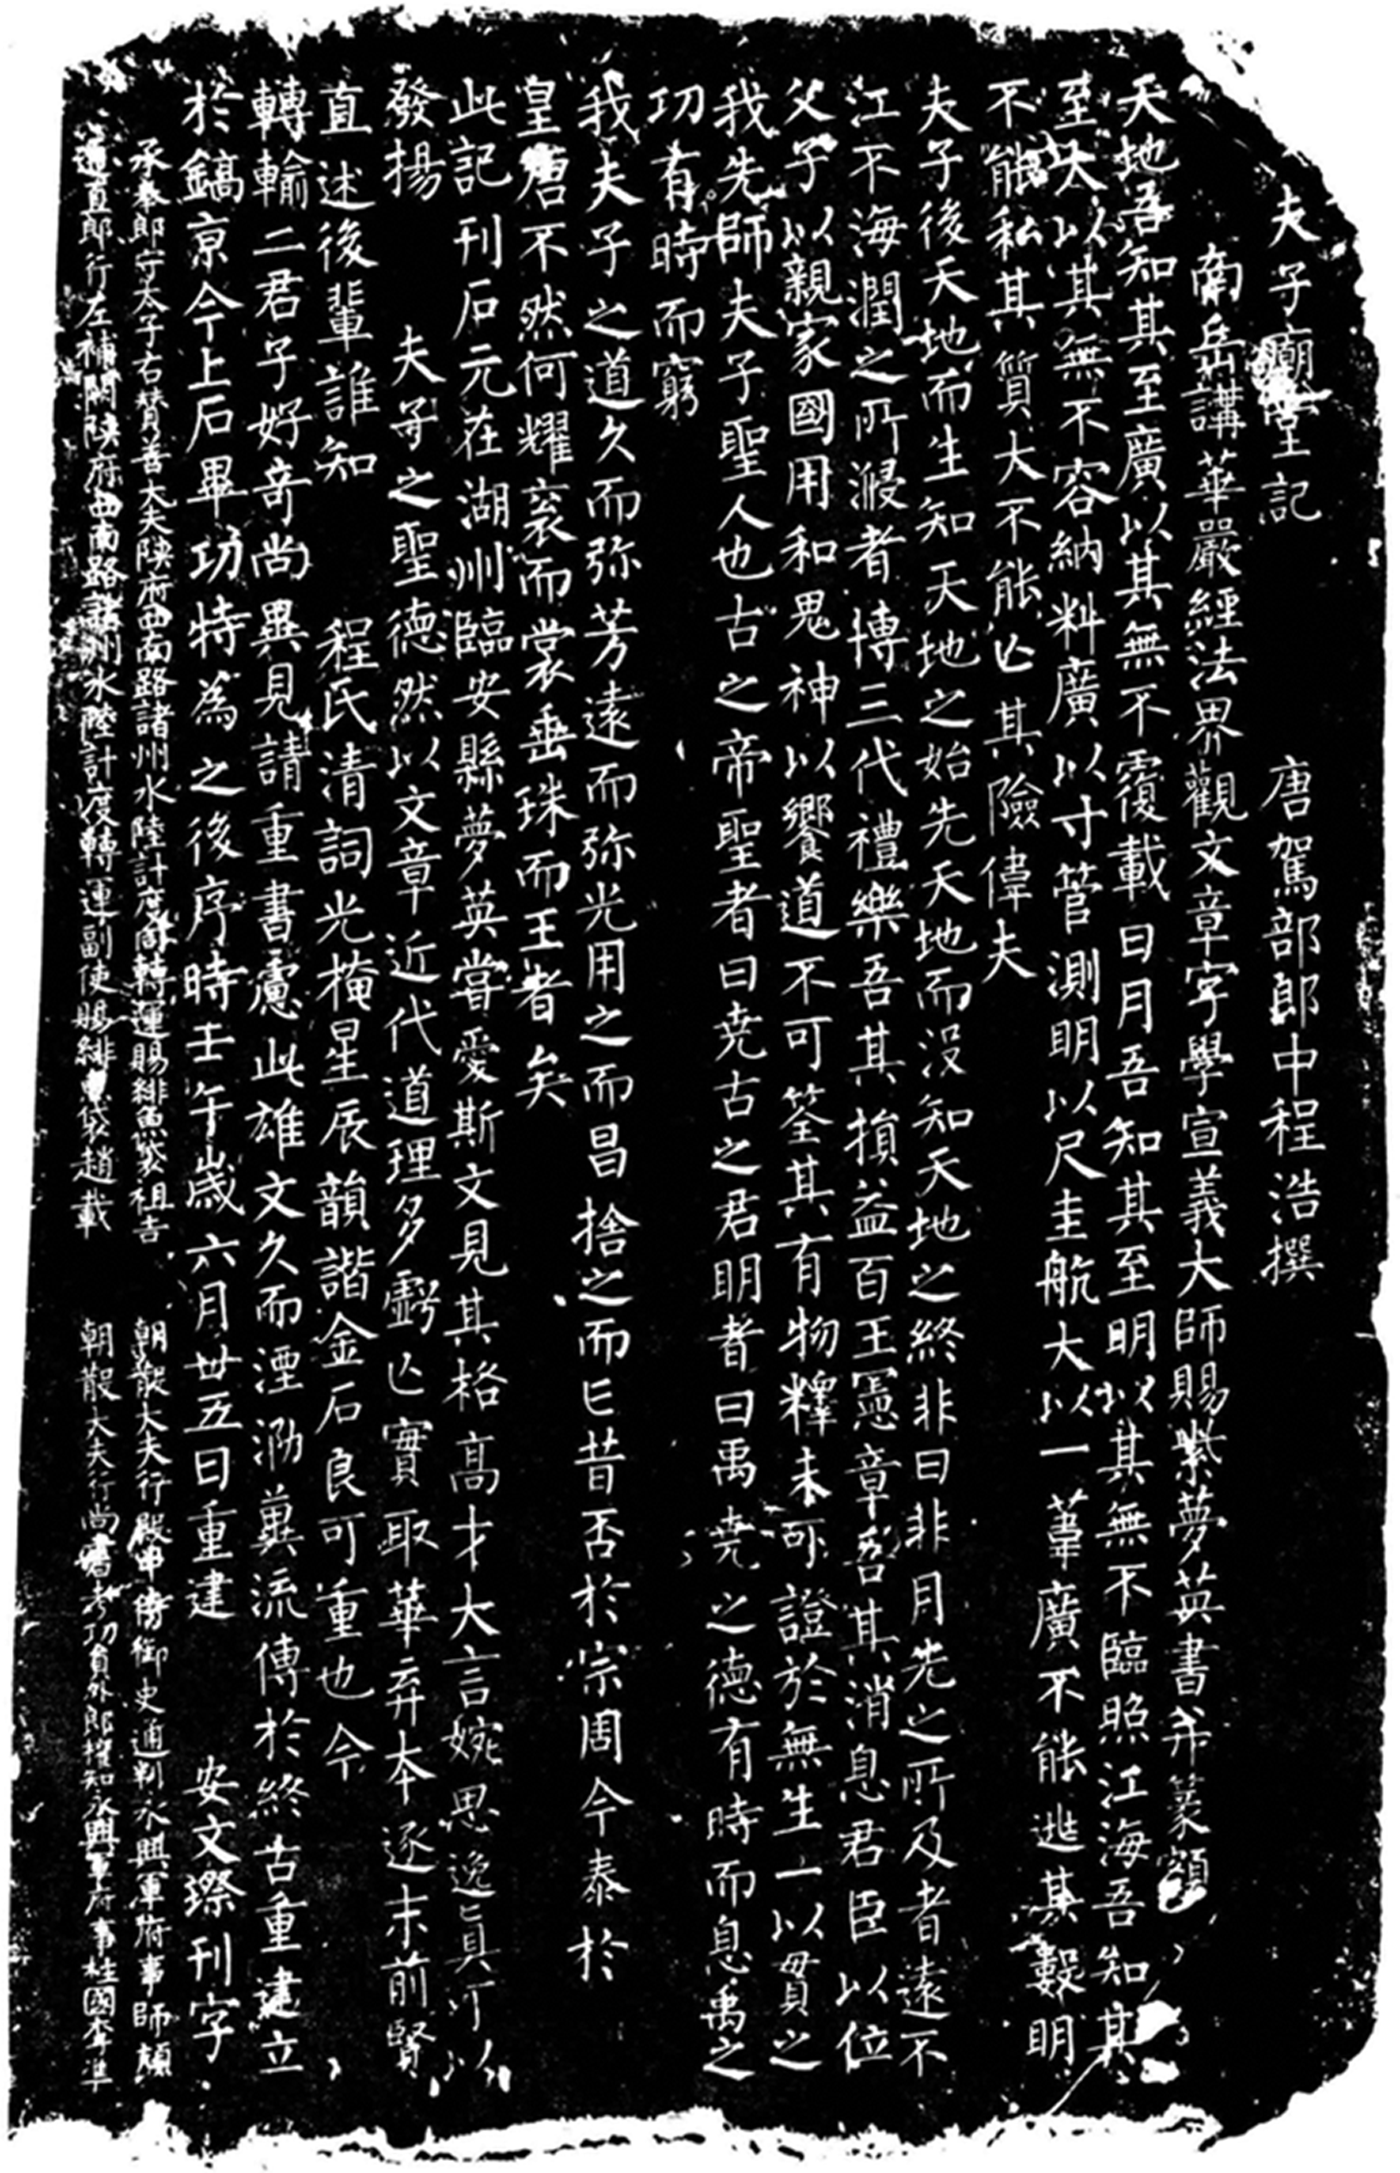 夫子廟堂記　唐駕部郎中程浩撰
南岳講華嚴經法界觀文章字學宣義大師賜紫夢英書并篆額
天地吾知其至廣以其無不覆載日月吾知其至明以其無不臨照江海吾知其
至大以其無不容納料廣以寸管測明以尺圭航大以一葦廣不能逃其數明
不能私其質大不能亾其險偉夫
夫子後天地而生知天地之始先天地而没知天地之終非日非月先之所及者遠不
江不海潤之所濅者博三代禮樂吾其損益百王憲章吾其消息君臣以位
父子以親家國用和鬼神以饗道不可筌其有物釋未可證於無生一以貫之
我先師夫子聖人也古之帝聖者曰尭古之君明者曰禹尭之德有時而息禹之
功有時而窮
我夫子之道久而弥芳遠而弥光用之而昌捨之而亡昔否於宗周今泰於
皇唐不然何耀衮而裳垂珠而王者矣
此記刊石元在湖州臨安縣夢英甞愛斯文見其格高才大言婉思逸旨可以
發揚　夫子之聖德然以文章近代道理多虧亾實取華弃本逐末前賢
直述後輩誰知　程氏清詞光掩星辰韻諧金石良可重也今
轉輸二君子好竒尚異見請重書慮此雄文久而湮泐冀流傳於終古重建立
於鎬京今上石畢功特為之後序時壬午歲六月廿五日重建　安文璨刊字
承奉郎守太子右賛善大夫陝府西南路諸州水陸計度轉運賜緋魚袋祖吉　朝散大夫行殿中侍御史通判永興軍府事師頏
通直郎行左補闕陝府西南路諸州水陸計度轉運副使賜緋魚袋趙載　朝散大夫行尚書考功員外郎權知永興軍府事柱國李準